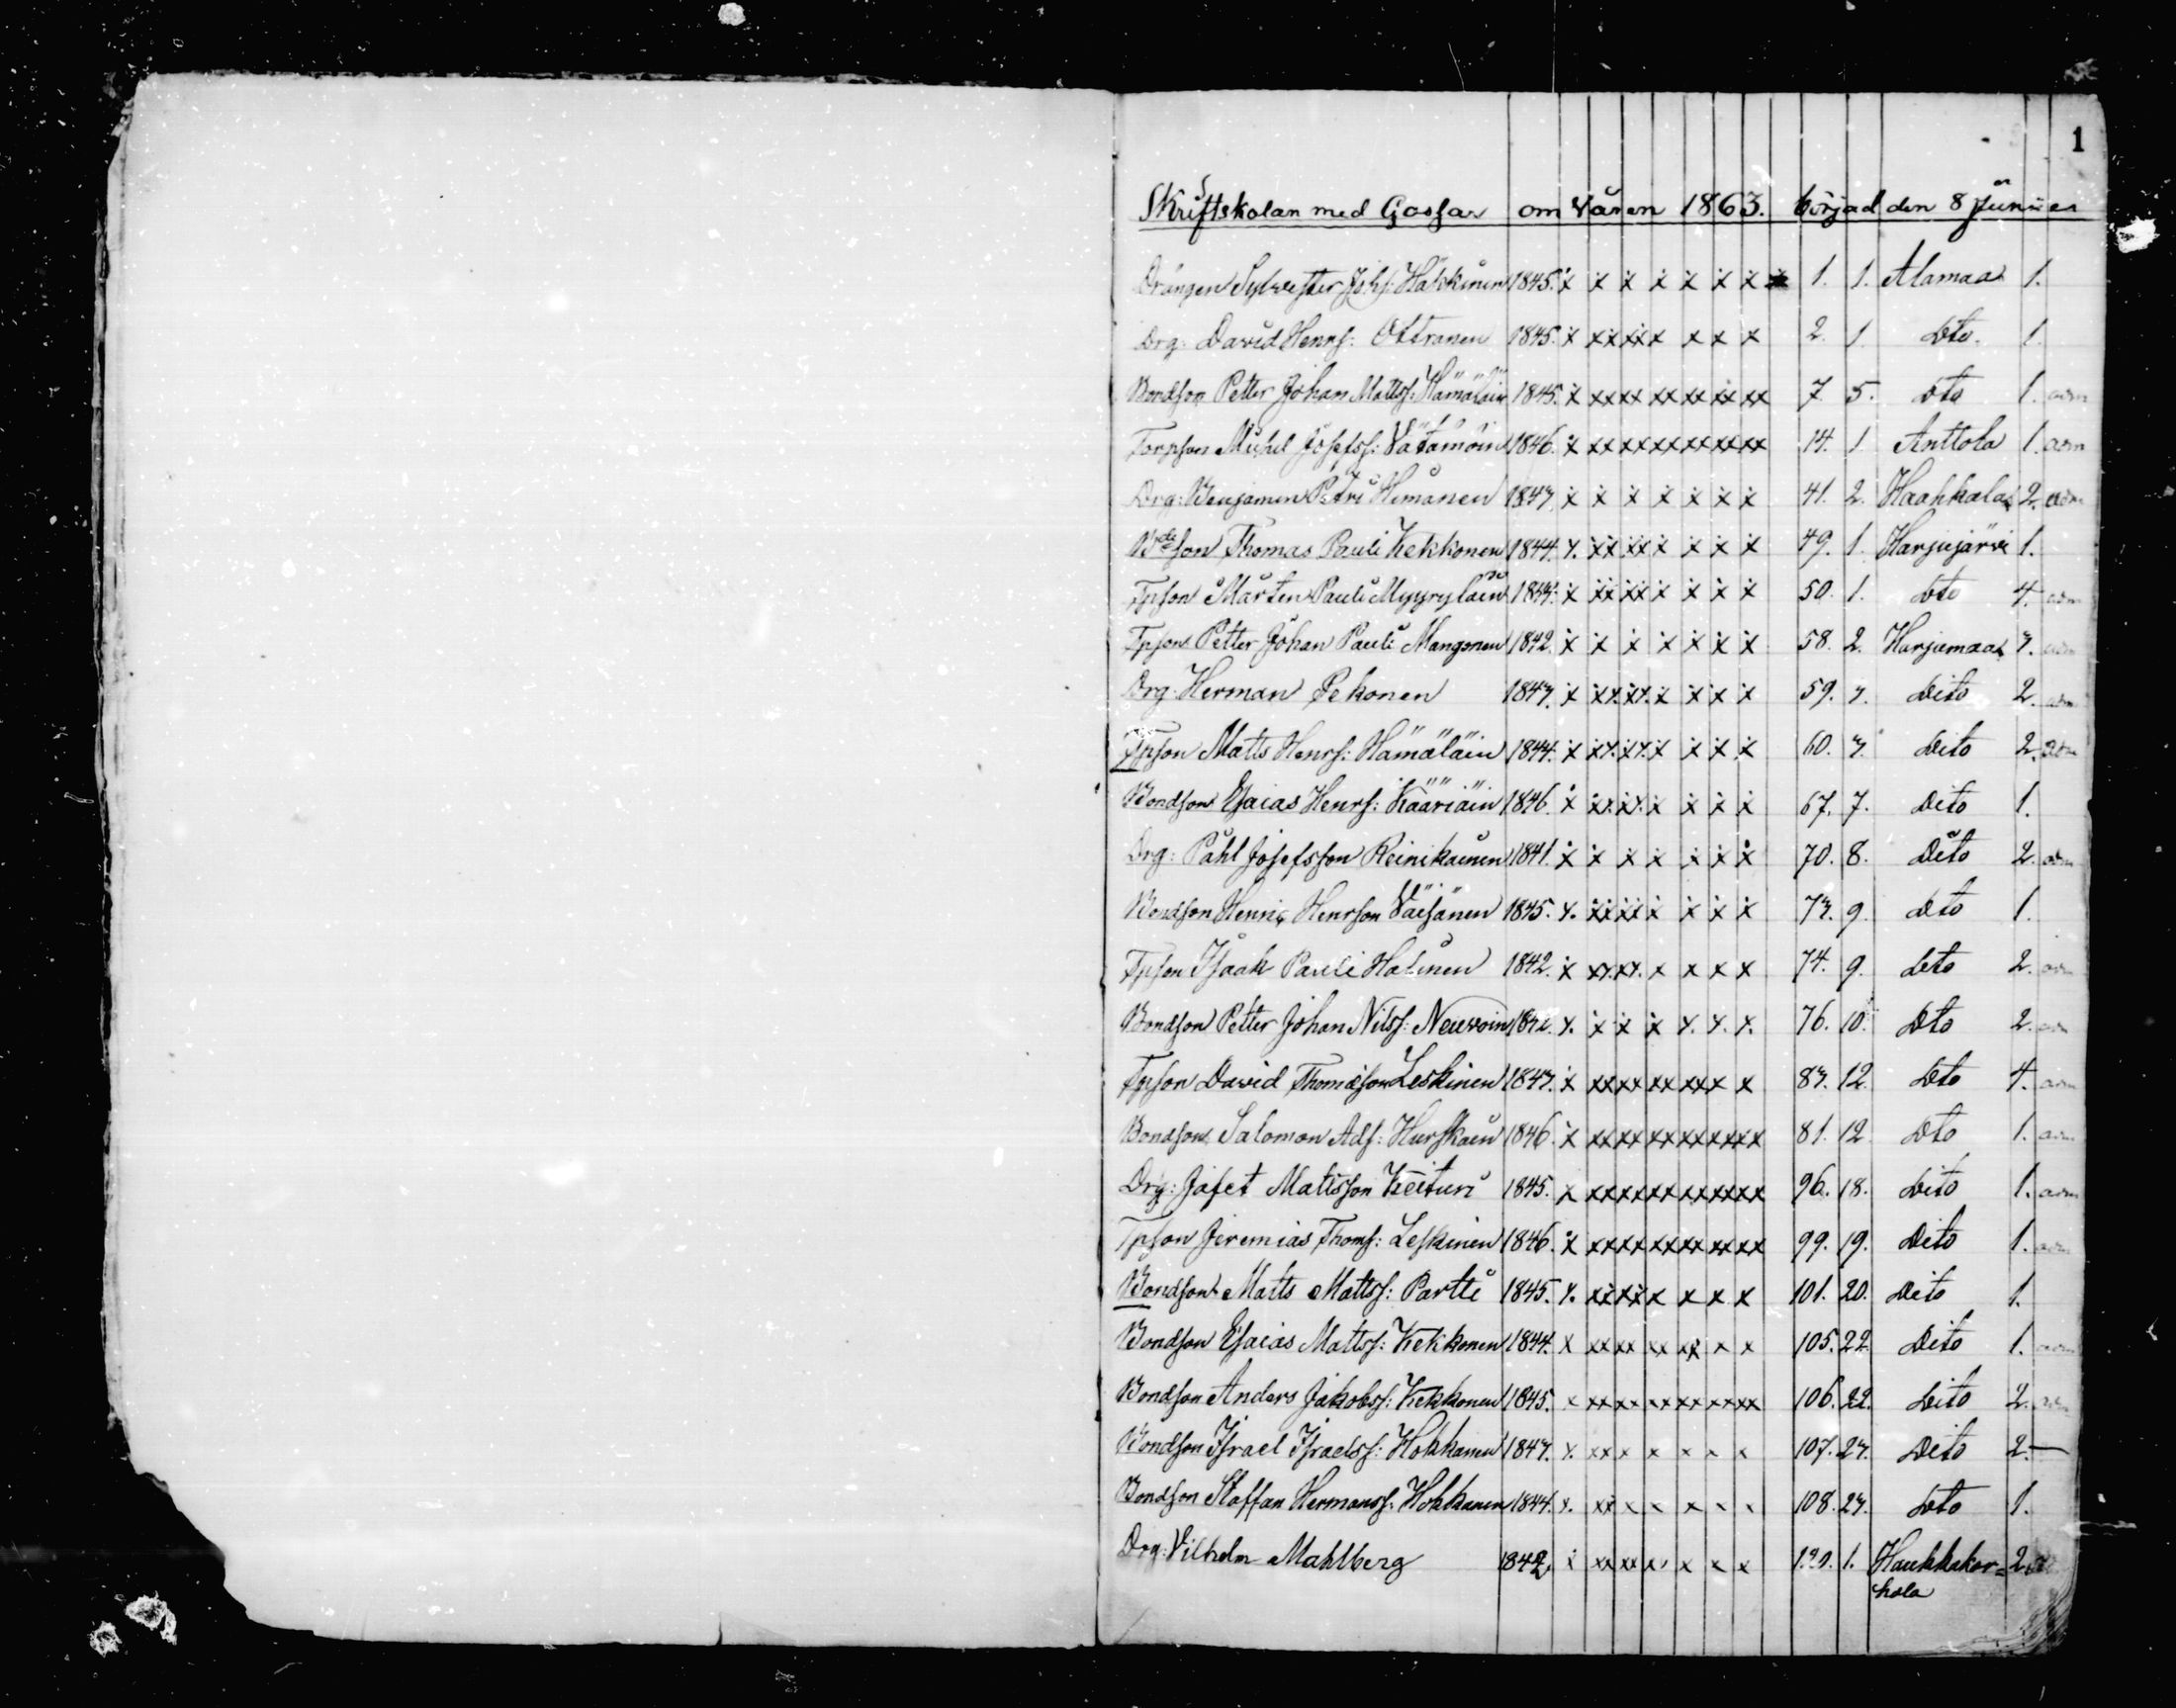 1
Skriftskolan med Gossar om våren 1863. börjad den 8 Junii
Drängen Sylvester Johs: Häkkinen 1845. x x x x x x x x 1. 1. Alamaa 1.
Drg: David Henrs: Ottranen 1845. x xx xx x x x x 2. 1. Dto. 1.
Bondson Petter Johan Mattss: Hämäläin 1845. x xx xx xx xx xx xx 7. 5. Dto 1. adm
Torpson Michel Josefss: Vätämöin 1846. x xx xx xx xx xx xx 14. 1. Anttola 1. adm
Drg: Benjamin Petri Himanen 1847. x x x x x x x 41. 2. Haahkala 2. adm
Bdeson Thomas Pauli Kekkonen 1844. x. xx xx x x x x 49. 1. Harjujärvi 1.
Tpson Mårten Pauli Myyryläin x xx xx x x x x 50. 1. Dto 4. adm
Tpson Petter Johan Pauli Mangonen 1842. x x x x x x x 58. 2. Harjumaa 3. adm
Drg: Herman Pekonen 1843. x xx. xx. x x x x 59. 3. Dito 2. adm
Tpson Matts Henrs: Hämäläin 1844. x xx. xx. x x x x 60. 3. Dito 2. adm
Bondson Esaias Henrs: Kääriäin 1846. x xx. xx. x x x x 67. 7. Dito 1.
Drg: Påhl Josefsson Reinikainen 1841. x x x x x x x 70. 8. Dito 2. adm
Bondson Henric Henrson Väisänen 1845. x. xx xx x x x x 73. 9. Dto 1.
Tpson Isaak Pauli Halinen 1842. x xx. xx. x x x x 74. 9. Dto 2. adm
Bondson Petter Johan Nilss: Neuvoin x. x x x x. x. x. 76. 10. Dto 2. adm
Tpson David Thomasson Leskinen 1843. x xx xx xx xx x x 83. 12. Dto 4. adm
Bondson Salomon Ads: Hurskain 1846. x xx xx xx xx xx xx 81. 12 Dto 1. adm
Drg: Jafet Mattsson Keituri 1845. x xx xx xx xx xx xx 96. 18. Dito 1. adm
Tpson Jeremias Thoms: Leskinen 1846. x xx xx xx xx xx xx 99. 19. Dito 1. adm
Bondson Matts Mattss: Partti 1845. x. xx xx x x x x 101. 20. Dito 1.
Bondson Esaias Mattss: Kekkonen 1844. x xx xx xx xx x x 105. 22. Dito 1. adm
Bondson Anders Jakobss: Kekkonen 1845. x xx xx xx xx xx xx 106. 22. Dito 2. adm
Bondson Israel Israelss: Hokkanen 1843. x. xx x x x x x 107. 23. Dito 2. —
Bondson Staffan Hermanss: Hokkanen 1844. x. xx x x x x x 108. 23. Dto 1.
Drg: Vilhelm Mahlberg 1842. x xx xx x x x x 1. Haukkakor= 2.
kola